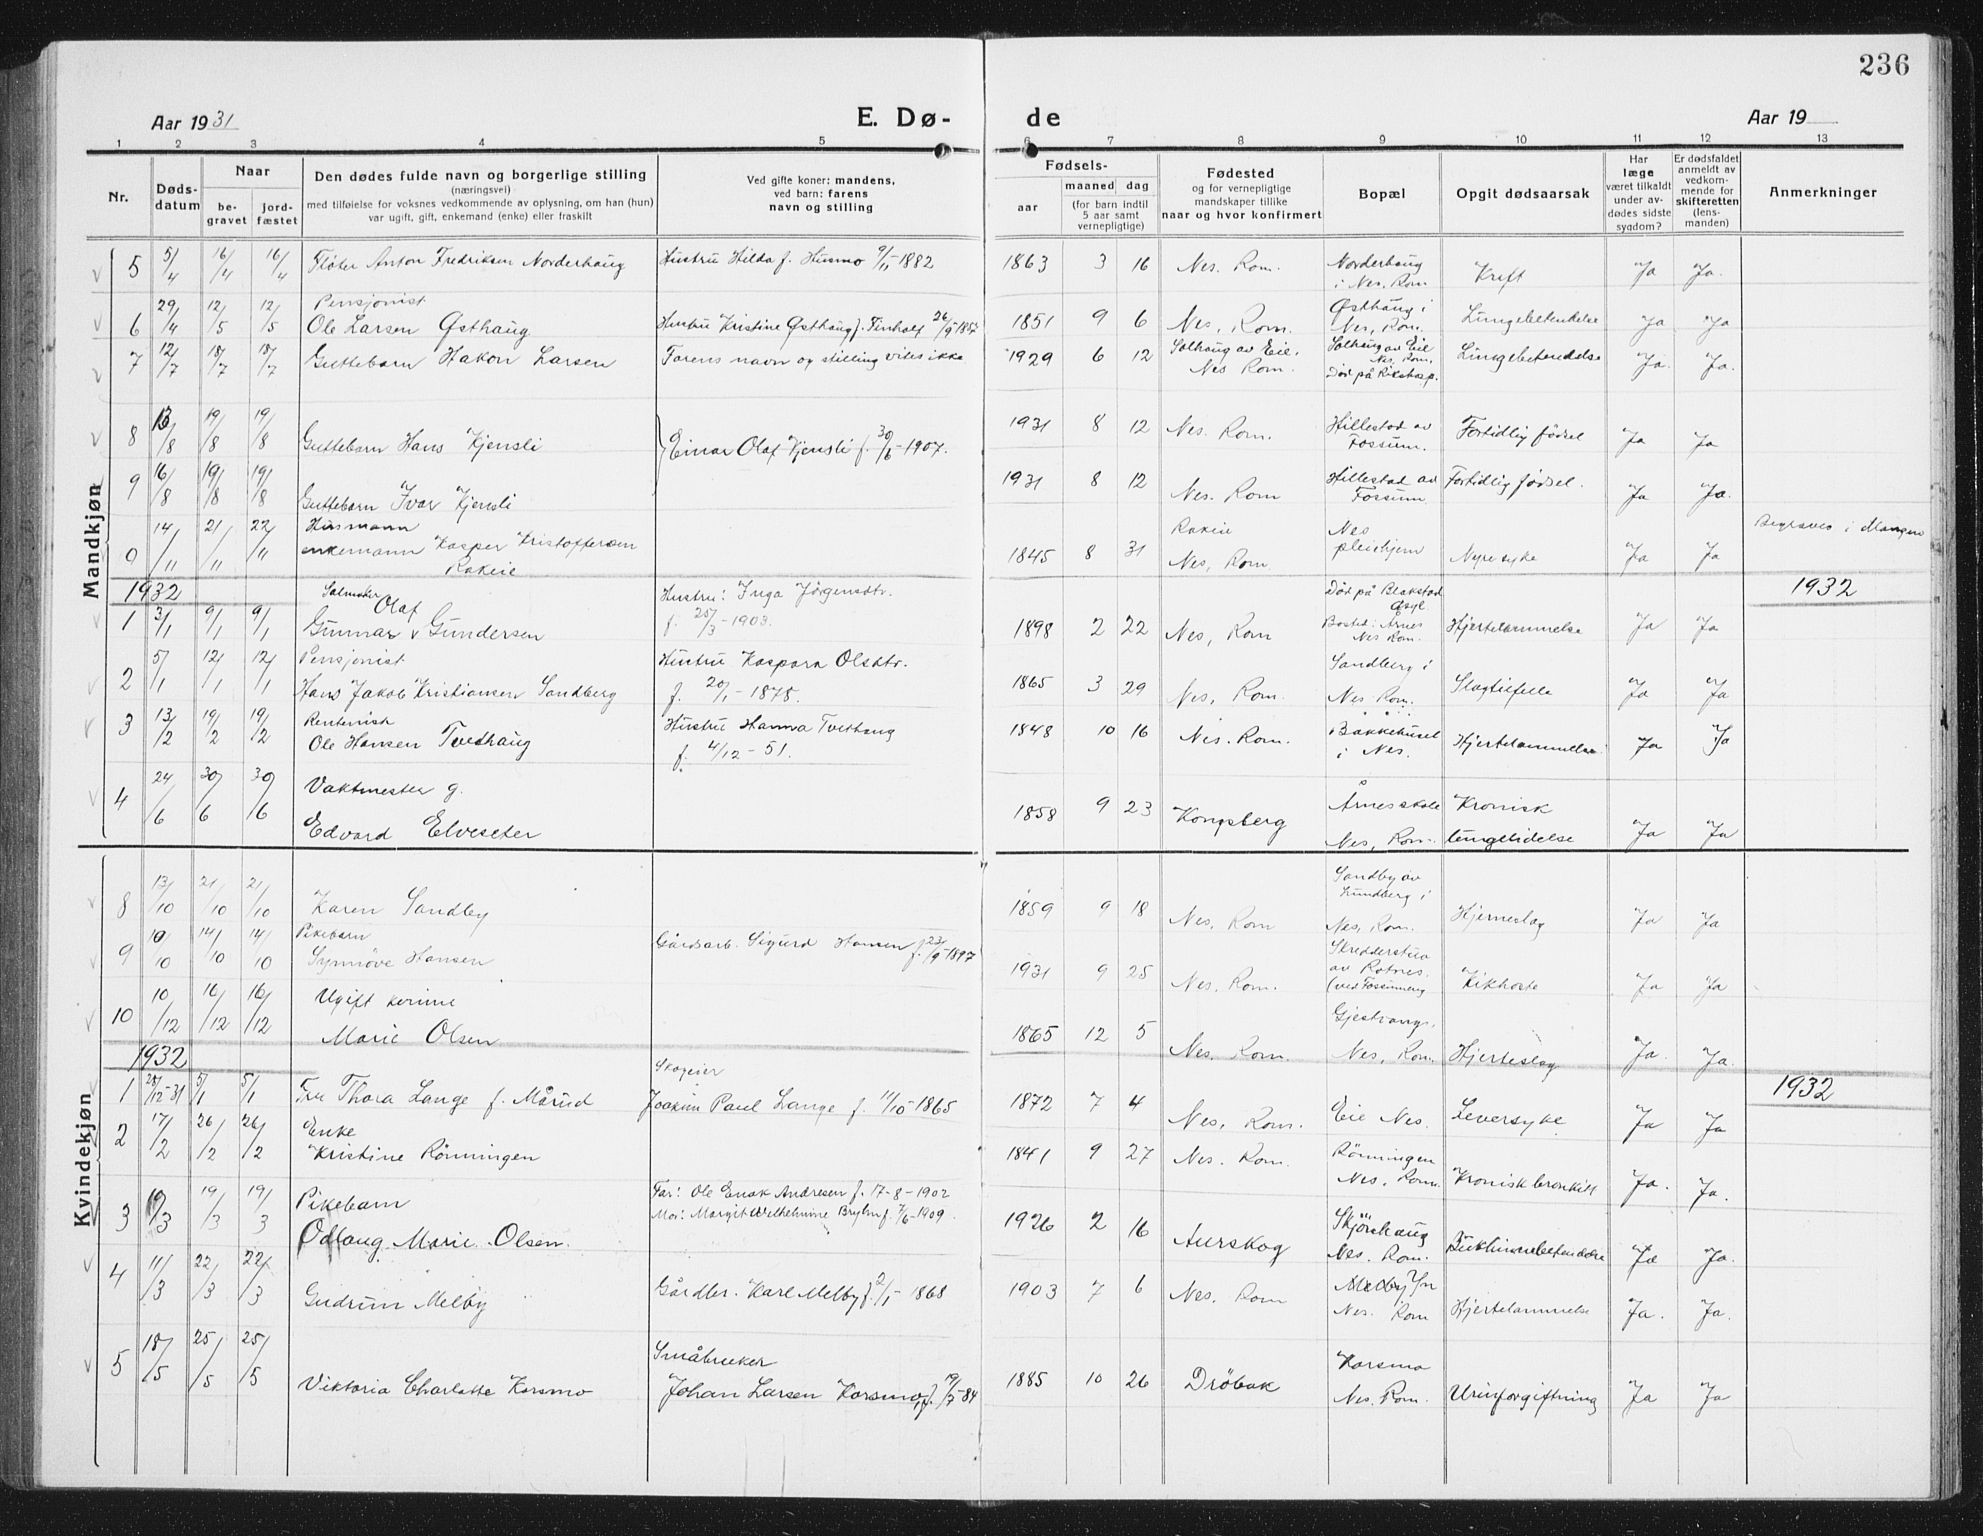 236
Aar 1931
E. Dø-
de
Aar 19
1 2 3 4 5 6 7 8 9 10 11 12 13
Nr.
Døds-
datum
Naar
be-
gravet
jord-
fæstet
Den dødes fulde navn og borgerlige stilling
(næringsvei)
med tilføielse for voksnes vedkommende av oplysning, om han (hun)
var ugift, gift, enkemand (enke) eller fraskilt
Ved gifte koner: mandens,
ved barn: farens
navn og stilling
Fødsels-
aar
maaned dag
(for barn indtil
5 aar samt
vernepligtige)
Fødested
og for vernepligtige
mandskaper tillike
naar og hvor konfirmert
Bopæl
Opgit dødsaarsak
Har
læge
været tilkaldt
under av-
dødes sidste
sygdom?
Er dødsfaldet
anmeldt av
vedkom-
mende for
skifteretten
(lens-
manden)
Anmerkninger
Mandkjøn
5 5/4 16/4 16/4 Fløter Anton Fredriksen Norderhaug Hustru Hilda f. Husmo 9/11-1882 1863 3 16 Nes. Rom. Norderhaug
i Nes. Rom Kreft Ja Ja.
Pensjonist
6 29/4 12/5 12/5 Ole Larsen Østhaug Hustru Kristine Østhaug f. 26/9 1857 1851 9 6 Nes, Rom. Østhaug i
Nes, Rom. Lungebetendelse Ja Ja
7 12/7 18/7 18/7 Guttebarn Hakon Larsen Farens navn og stilling vites ikke 1929 6 12 Solhaug av Eie,
Nes Rom. Solhaug av Eie
Nes, Rom.
Død på Rikshosp. Lungebetendelse Ja. Ja.
8 13/8 19/8 19/8 Guttebarn Hans Kjensli Einar Olaf Kjensli f. 30/6-1907. 1931 8 12 Nes. Rom. Hillestad av
Fossum. Fortidlig fødsel Ja Ja
9 16/8 19/8 19/8 Guttebarn Ivar Kjensli 1931 8 12 Nes. Rom Hillestad av
Fossum Fortidlig fødsel. Ja Ja.
Husmann
0 14/11 21/11 22/11 enkemann Kasper Kristoffersen
Rakeie 1845 8 31 Rakeie
Nes, Rom Nes
pleiehjem Nyresyke Ja Ja Begraves i Mangen
1932 1932
Salmaker
1 3/1 9/1 9/1 Gunnar v Olaf Gundersen Hustru: Inga Jørgensdtr.
f. 25/3-1903. 1898 2 22 Nes, Rom Død på Blakstad
Asyl.
Bosted: Årnes
Nes Rom. Hjertelammelse Ja Ja
Pensjonist
2 5/1 12/1 12/1 Hans Jakob Kristiansen Sandberg Hustru Kaspara Olsdtr.
f. 20/1-1878. 1865 3 29 Nes, Rom. Sandberg i
Nes Rom. Slagtilfelle Ja Ja
Rentenist
3 13/2 19/2 19/2 Ole Hansen Tvedhaug Hustru Hanna Tvethaug
f. 4/12-51. 1848 10 16 Nes. Rom. Bakkehusel
i Nes. Hjertelammelse Ja Ja
4 24/6 30/6 30/6 Vaktmester g.
Edvard Elveseter 1858 9 23 Kongsberg Årnes skole
Nes, Rom. Kronisk
lungelidelse Ja Ja
Kvindekjøn
8 13/10 21/10 21/10 Karen Sandby 1859 9 18 Nes, Rom Sandby av
Lundberg i
Nes, Rom. Hjerneslag Ja Ja
Pikebarn
9 10/10 14/10 14/10 Synnöve Hansen Gårdsarb. Sigurd Hansen f. 23/9 1897 1931 9 25 Nes, Rom. Skredderstua
av Rotnes.
(ved Fossumeng Kikhoste Ja Ja
10 10/12 16/12 16/12 Ugift kvinne
Marie Olsen 1865 12 5 Nes. Rom. Gjestvang,
Nes, Rom. Hjerteslag Ja. Ja.
1932 1932
Skogeier
1 28/12-31 5/1 5/1 Fru Thora Lange f. Mårud Joakim Paul Lange f. 11/10-1865 1872 7 4 Nes, Rom. Eie Nes. Leversyke Ja Ja
Enke
2 17/2 26/2 26/2 Kristine Rönningen 1841 9 27 Nes. Rom. Rönningen
Nes, Rom. Kronisk bronkitt Ja. Ja.
3 10/3 19/3 19/3 Pikebarn
Odlaug Marie Olsen. Far: Ole Enok Andresen f. 17-8-1902
Mor: Margit Wilhelmine f. 7/6-1909. 1926 2 16 Aurskog Skjörshaug
Nes. Rom. Bukhinnebetendelse Ja Ja.
4 11/3 22/3 22/3 Gudrun Melby Gårdbr. Karl Melby f. 2/1-1868 1903 7 6 Nes, Rom Melby
Nes. Rom Hjertelammelse Ja. Ja.
5 18/5 25/5 25/5 Viktoria Charlotte Korsmo Småbruker
Johan Larsen Korsmo, f. 19/5-84 1885 10 26 Dröbak Korsmo
Nes. Rom. Urinforgiftning Ja Ja